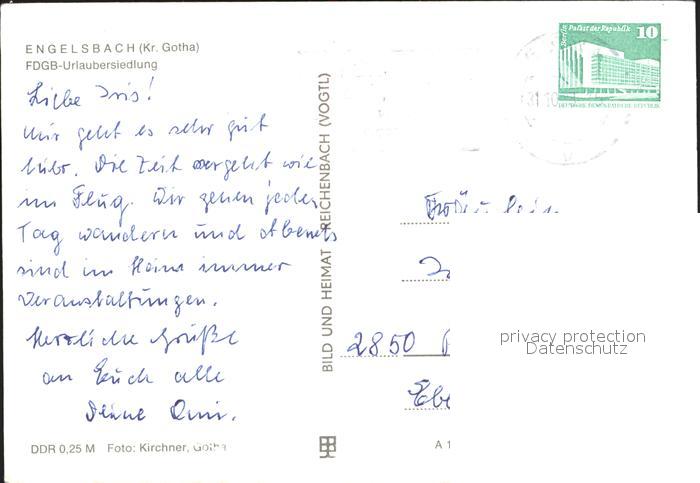 ENGELSBACH (Kr. Gotha)
FDGB-Urlaubersiedlung
Liebe Iris!
Mir geht es sehr gut
hier. Die Zeit vergeht wie
im Flug. Wir gehen jeden
Tag wandern und Abends
sind im Heim immer
Veranstaltungen.
Herzliche Grüße
an Euch alle
Deine Omi.
DDR 0,25 M Foto: Kirchner, Gotha
BILD UND HEIMAT REICHENBACH (VOGTL)
Berlin Palast der Republik 10
DEUTSCHE DEMOKRATISCHE REPUBLIK
Fräulein
2850
privacy protection
Datenschutz
A 1